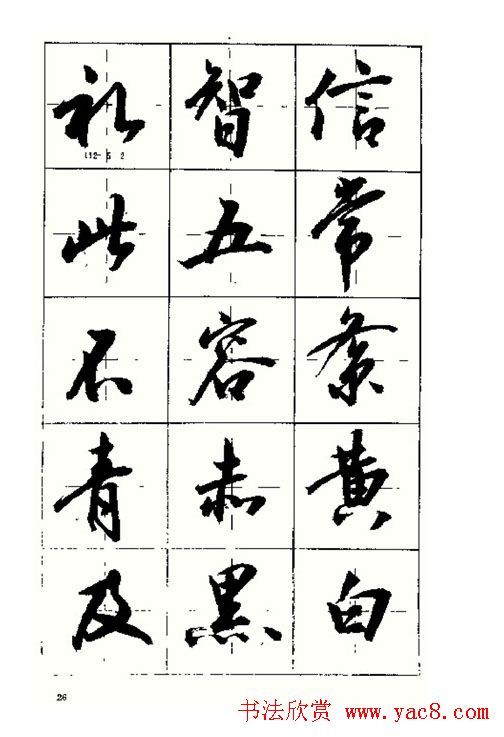 礼智信
此五常
不容紊
青赤黄
及黑白
26
书法欣赏 www.yac8.com